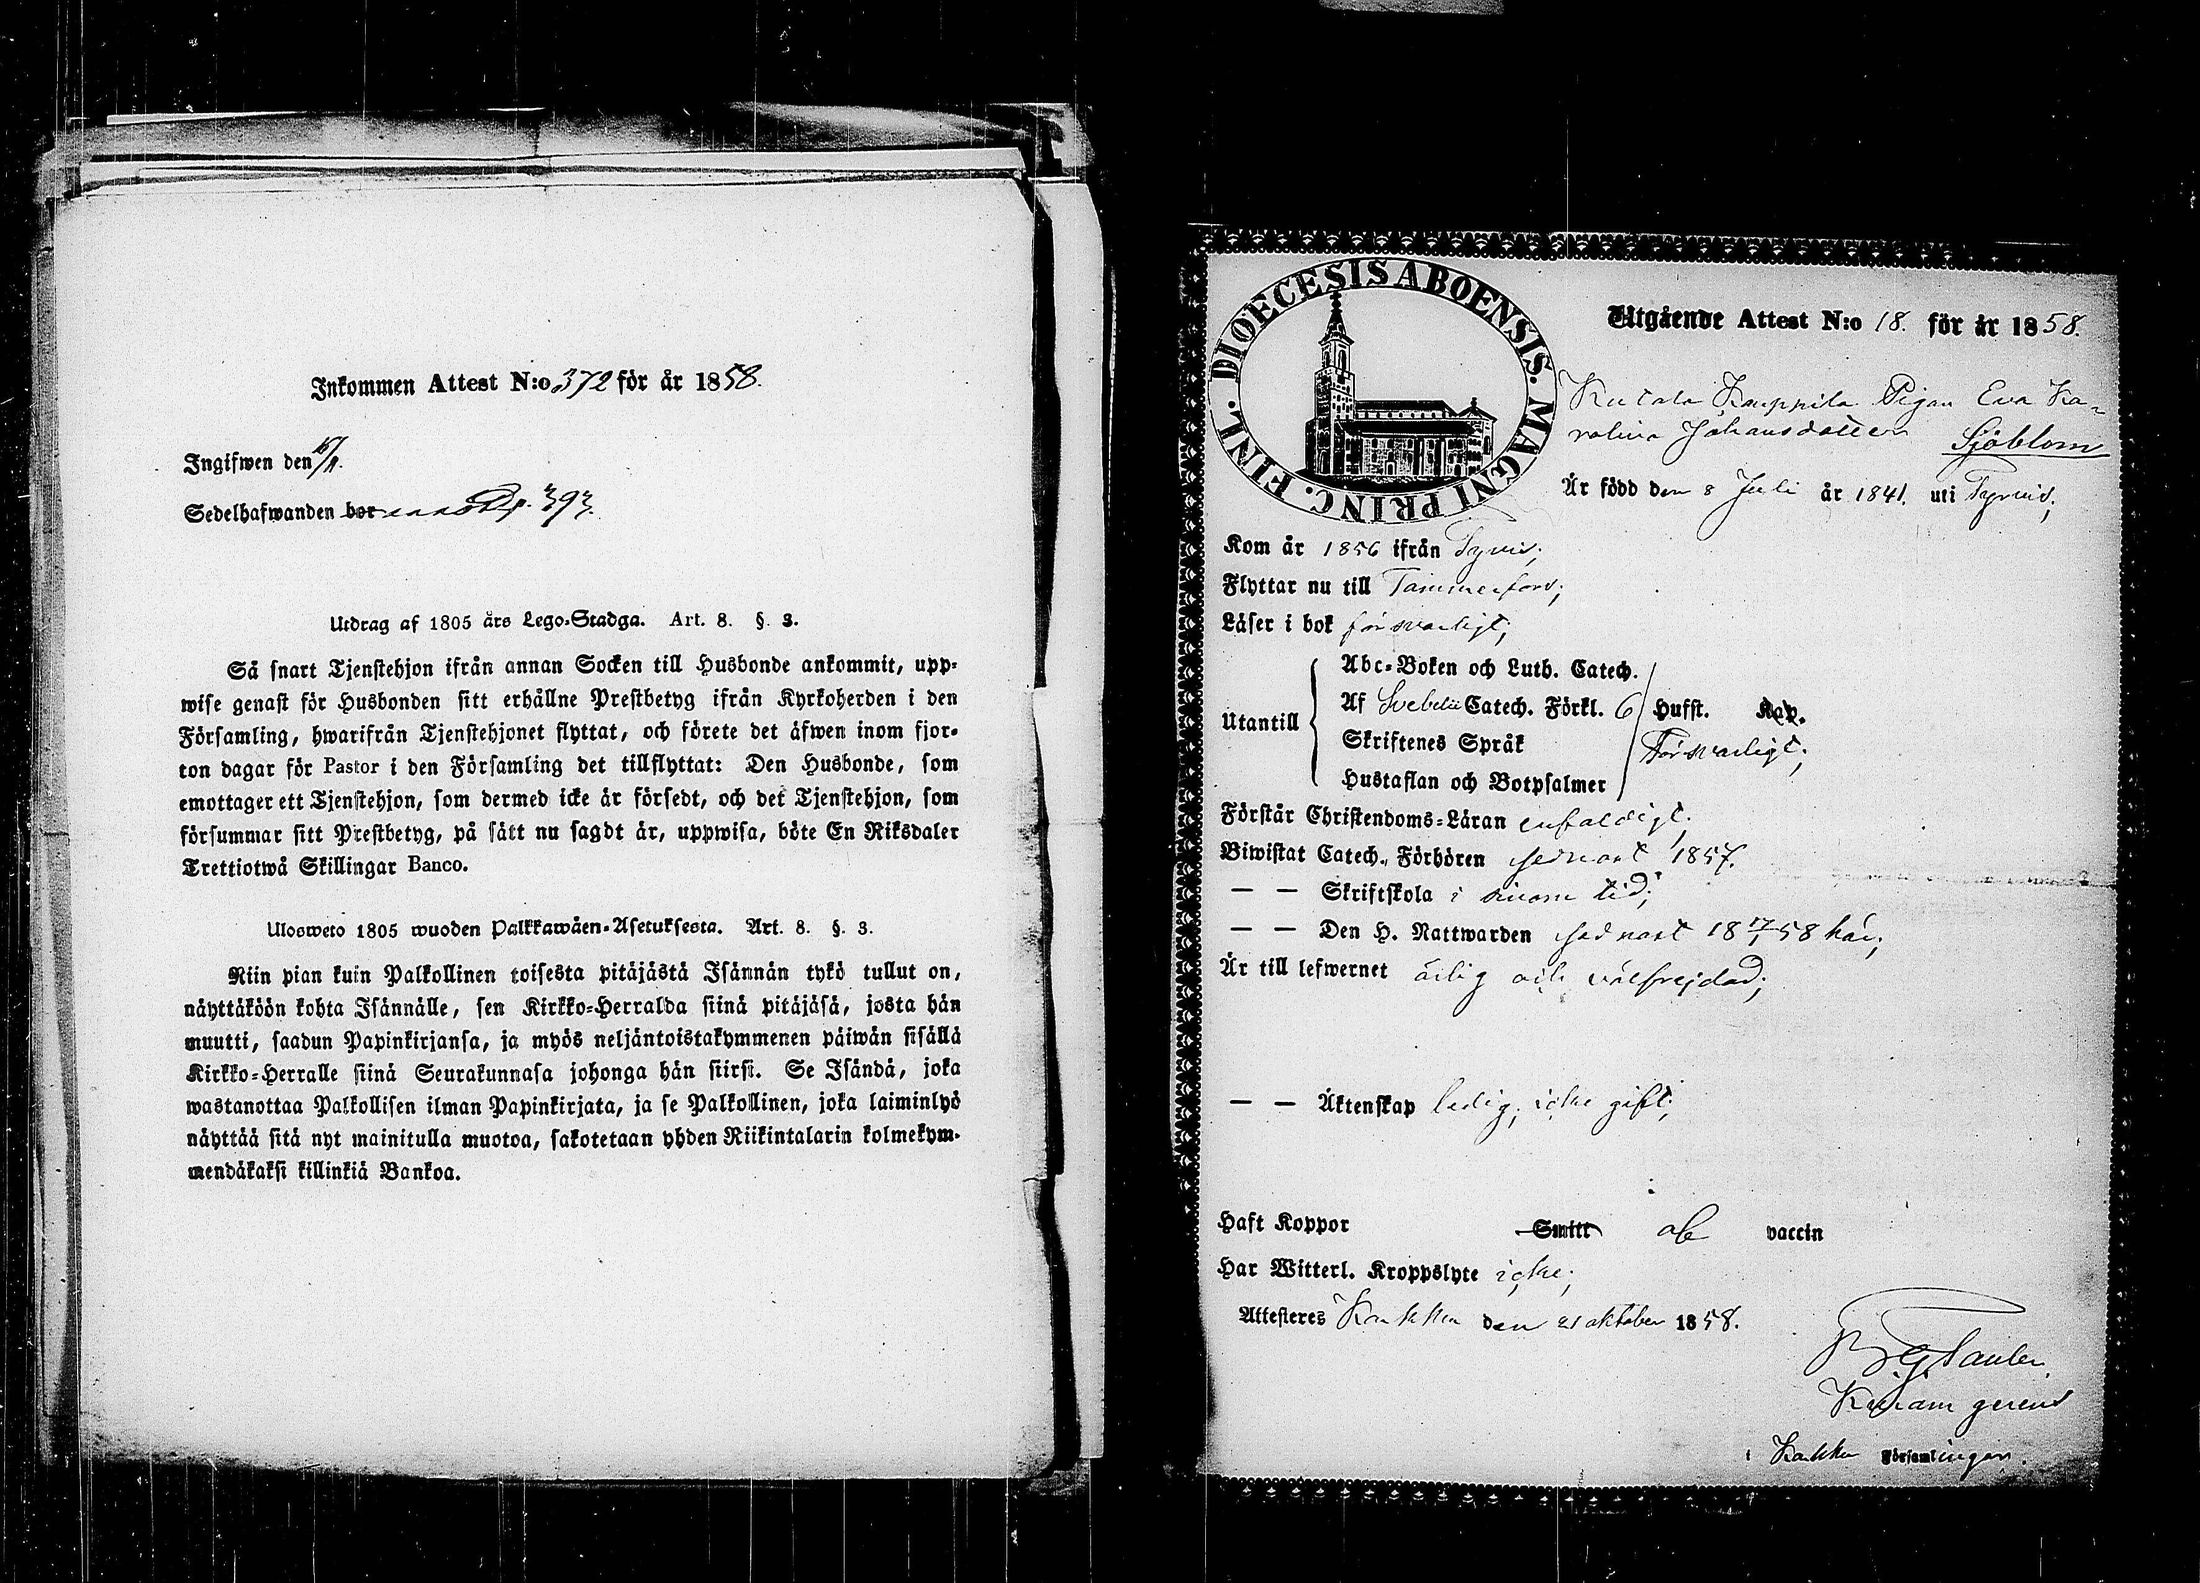 Inkommen Attest N:o 372 för år 1858.
Ingifwen den
Sedelhafwanden bor 393
Utdrag af 1805 års Lego-Stadga. Art. 8. §. 3.
Så snart Tjenstehjon ifrån annan Socken till Husbonde ankommit, upp-
wise genast för Husbonden sitt erhållne Prestbetyg ifrån Kyrkoherden i den
Församling, hwarifrån Tjenstehjonet flyttat, och förete det äfwen inom fjor-
ton dagar för Pastor i den Församling det tillflyttat: Den Husbonde, som
emottager ett Tjenstehjon, som dermed icke är försedt, och det Tjenstehjon, som
försummar sitt Prestbetyg, på sätt nu sagdt är, uppwisa, böte En Riksdaler
Trettiotwå Skillingar Banco.
Ulosweto 1805 wuoden Palkkawäen-Asetuksesta. Art. 8. §. 3.
Niin pian kuin Palkollinen toisesta pitäjästä Isännän tykö tullut on,
näyttäköön kohta Isännälle, sen Kirkko-Herralda siinä pitäjäsä, josta hän
muutti, saadun Papinkirjansa, ja myös neljäntoistakymmenen päiwän sisällä
Kirkko-Herralle siinä Seurakunnasa johonga hän siirsi. Se Isändä, joka
wastanottaa Palkollisen ilman Papinkirjata, ja se Palkollinen, joka laiminlyö
näyttää sitä nyt mainitulla muotoa, sakotetaan yhden Riikintalarin kolmekym-
mendäkaksi killinkiä Bankoa.
DIOECESIS ABOENSIS. MAGNI PRINC. FINL.
Utgående Attest N:o 18. för år 1858.
Kauppila Pigan Eva Ka-
rolina Johansdotter Sjöblom
Är född den 8 Juli år 1841. uti Tyrvis;
Kom år 1856 ifrån Tyrvis;
Flyttar nu till Tammerfors;
Läser i bok försvarligt;
Utantill
Abc-Boken och Luth. Catech.
Af Svebelii Catech. Förkl. 6 Hufst. Kap.
Skriftenes Språk
Hustaflan och Botpsalmer
Försvarligt;
Förstår Christendoms-Läran enfaldigt;
Biwistat Catech. Förhören sednast 1857.
— — Skriftskola i sinom tid;
— — Den H. Nattwarden sednast 18 17/1 58 här;
Är till lefwernet ärlig och välfrejdad;
— — Äktenskap ledig, icke gift;
Haft Koppor Smitt af vaccin
Har Witterl. Kroppslyte icke;
Attesteres den 21 oktober 1858.
Kuram gerens
i församlingen.